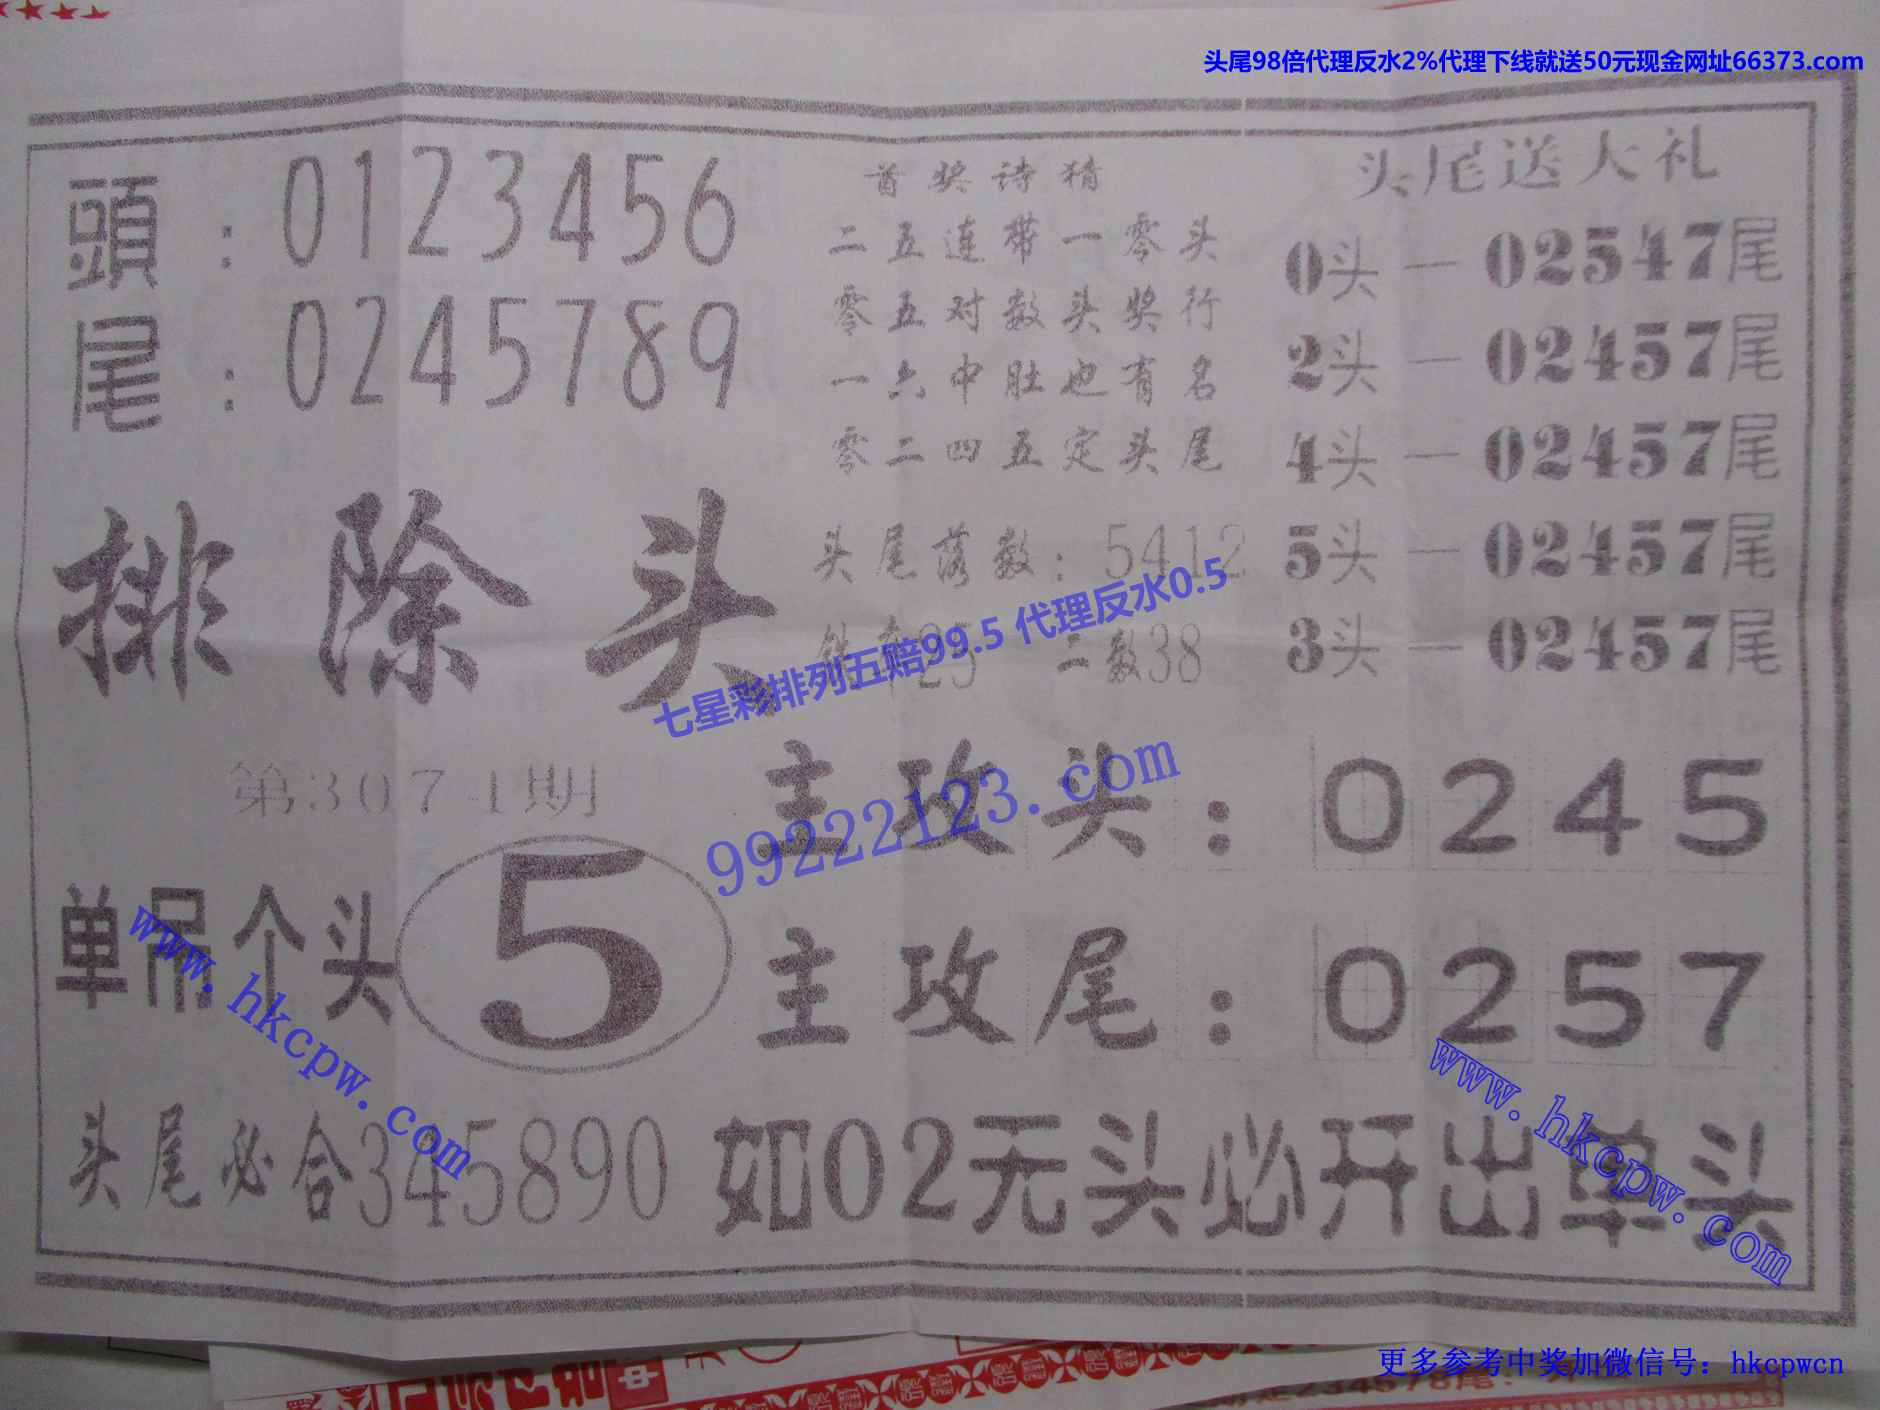 头尾98倍代理反水2%代理下线就送50元现金网址66373.com
頭：0123456
尾：0245789
首奖诗猜
二五连带一零头
零五对数头奖行
一六中肚也有名
零二四五定头尾
头尾落数：5412
25 二数38
头尾送大礼
0头—02547尾
2头—02457尾
4头—02457尾
5头—02457尾
3头—02457尾
排除头
七星彩排列五赔99.5 代理反水0.5
99222123.com
第3074期
单吊个头5
主攻头：0245
主攻尾：0257
www.hkcpw.com
www.hkcpw.com
头尾必合345890
如02无头必开出单头
更多参考中奖加微信号：hkcpwcn